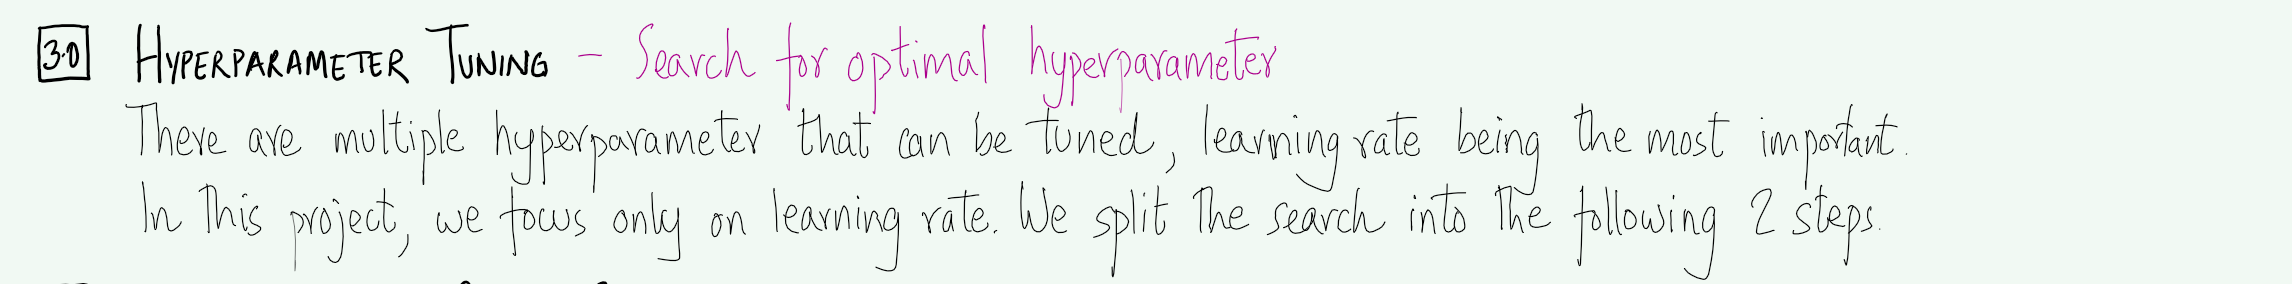 3.0 HYPERPARAMETER TUNING - Search for optimal hyperparameter
There are multiple hyperparameter that can be tuned, learning rate being the most important.
In this project, we focus only on learning rate. We split the search into the following 2 steps.